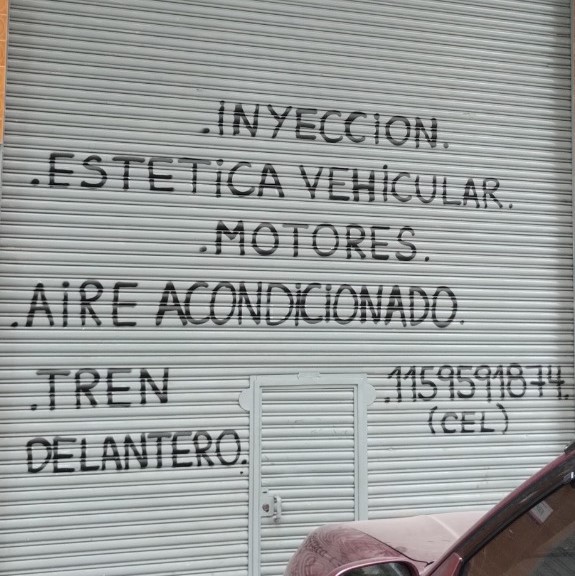 .iNYECCiON.
.ESTETiCA VEHiCULAR.
.MOTORES.
.AiRE ACONDiCiONADO.
.TREN
DELANTERO.
.1159591874.
(CEL)